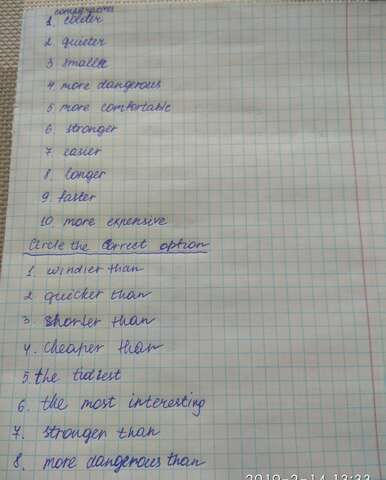 1. colder
2 quieter
3 smaller
4 more dangerous
5 more comfortable
6 stronger
7. easier
8. longer
9. faster
10. more expensive
Circle the correct option
1. windier than
2 quicker than
3 shorter than
4. cheaper than
5. the
6. the most interesting
7. stronger than
8. more dangerous than
2019-2-14 13:33